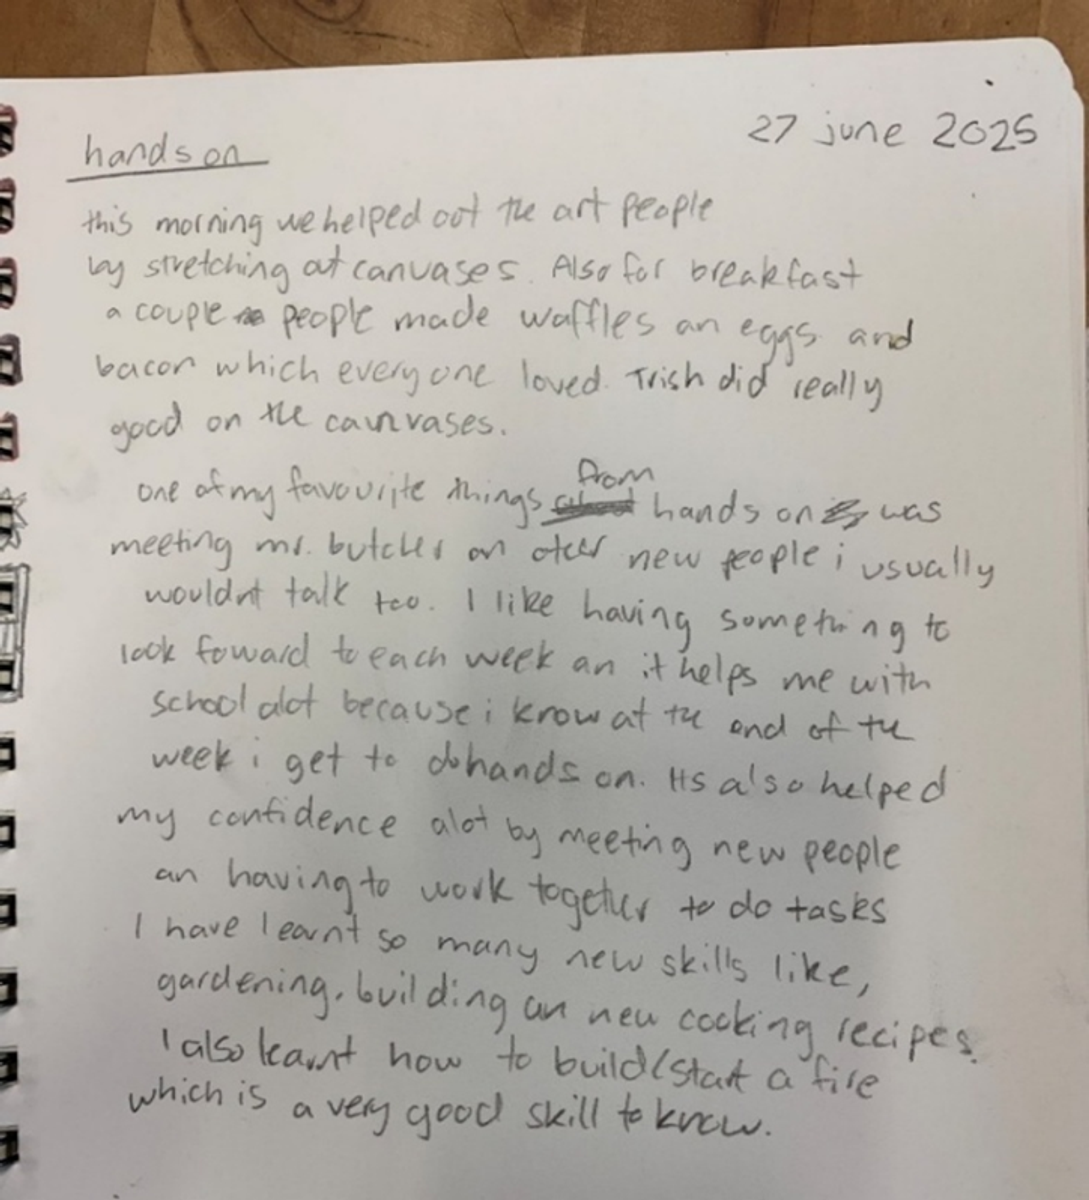 hands on
27 june 2025
this morning we helped out the art people
by stretching out canvases. Also for breakfast
a couple people made waffles an eggs and
bacon which everyone loved. Trish did really
good on the canvases.
one of my favourite things from hands on was
meeting mr. butcher an other new people i usually
wouldnt talk too. I like having something to
look foward to each week an it helps me with
school alot because i know at the end of the
week i get to do hands on. Its also helped
my confidence alot by meeting new people
an having to work together to do tasks
I have learnt so many new skills like,
gardening, building an new cooking recipes.
I also learnt how to build/start a fire
which is a very good skill to know.